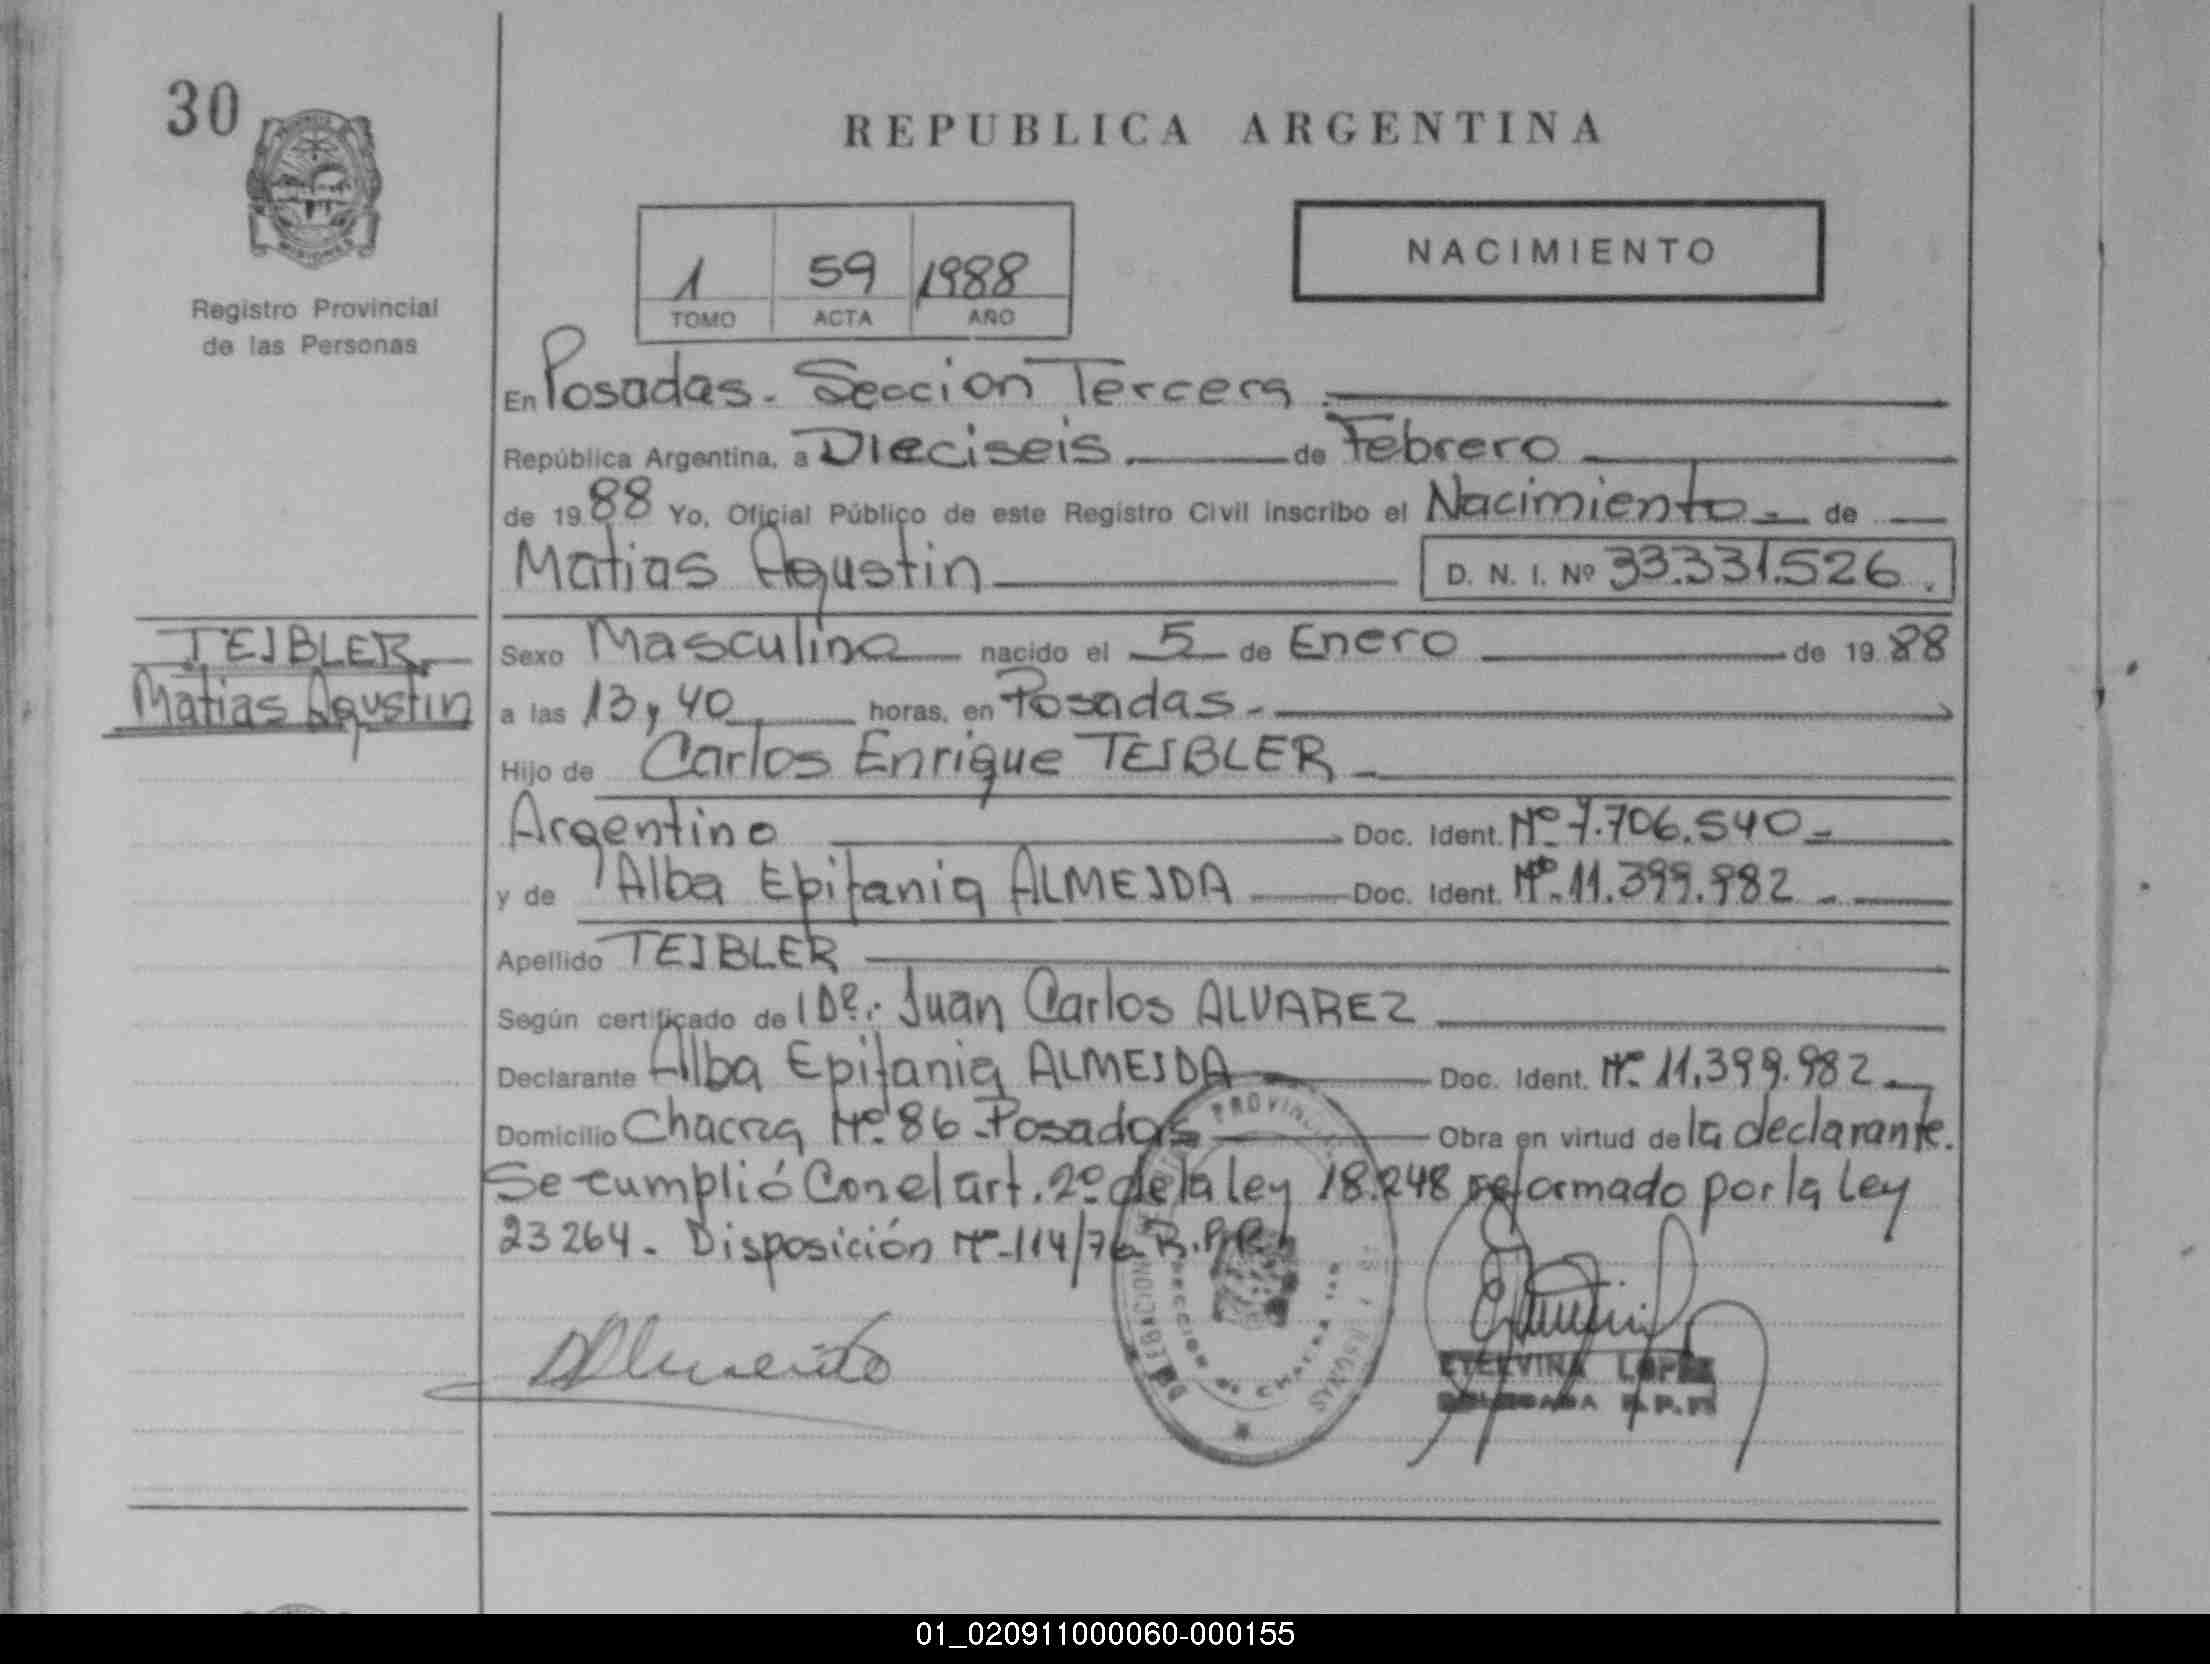 30
REPUBLICA ARGENTINA
NACIMIENTO
1 59 1988
TOMO ACTA AÑO
Registro Provincial
de las Personas
En Posadas. Seccion Tercera
República Argentina, a Dieciseis de Febrero
de 1988 Yo, Oficial Público de este Registro Civil inscribo el Nacimiento de
Matias Agustin D. N. I. Nº 33.331.526.
TEIBLER
Matias Agustin
Sexo Masculino nacido el 5 de Enero de 1988
a las 13,40 horas, en Posadas.
Hijo de Carlos Enrique TEIBLER
Argentino Doc. Ident. Nº 7.706.540
y de Alba Epifania ALMEIDA Doc. Ident. Nº 11.399.982
Apellido TEIBLER
Según certificado de Juan Carlos ALVAREZ
Declarante Alba Epifania ALMEIDA Doc. Ident. Nº 11.399.982
Domicilio Chacra Nº 86 Posadas Obra en virtud de la declarante.
Se cumplió Con el art. 2º de la ley 18.248 reformado por la Ley
23264. Disposición Nº 114/76 R.P.P.
ETELVINA LOPEZ
DELEGADA R.P.P.
01_020911000060-000155